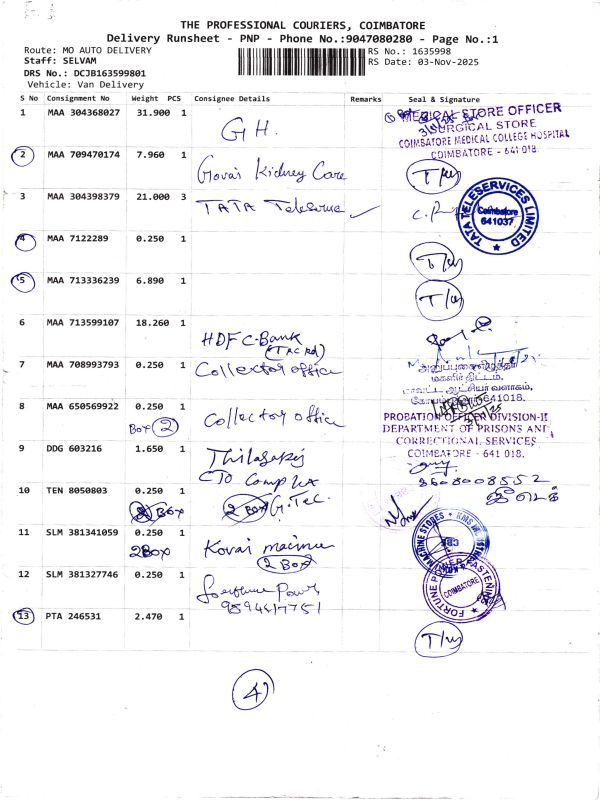 THE PROFESSIONAL COURIERS, COIMBATORE
Delivery Runsheet - PNP - Phone No.:9047080280 - Page No.:1
Route: MO AUTO DELIVERY
RS No.: 1635998
Staff: SELVAM
RS Date: 03-Nov-2025
DRS No.: DCJB163599801
Vehicle: Van Delivery
S No Consignment No Weight PCS Consignee Details Remarks Seal & Signature
1 MAA 304368027 31.900 1 G H.
MEDICAL STORE OFFICER
SURGICAL STORE
COIMBATORE MEDICAL COLLEGE HOSPITAL
COIMBATORE - 641 018.
2 MAA 709470174 7.960 1 Govai Kidney Care
3 MAA 304398379 21.000 3 TATA Teleserve
TATA TELESERVICES LIMITED
Coimbatore
641037
4 MAA 7122289 0.250 1
5 MAA 713336239 6.890 1
6 MAA 713599107 18.260 1 HDFC Bank
7 MAA 708993793 0.250 1 Collector office
மகளிர் திட்டம்,
641018.
8 MAA 650569922 0.250 1 Collector office
Box 2
PROBATION OFFICER DIVISION-II
DEPARTMENT OF PRISONS AND
CORRECTIONAL SERVICES
COIMBATORE - 641 018.
9 DDG 603216 1.650 1
CTO Complex
3608008552
10 TEN 8050803 0.250 1 G.Tec.
2 Box 2 Box
11 SLM 381341059 0.250 1 Kovai
2 Box 2 Box
MACHINE STORES
12 SLM 381327746 0.250 1
9894617751
FORTUNE POWER FASTENING
COIMBATORE
13 PTA 246531 2.470 1
4